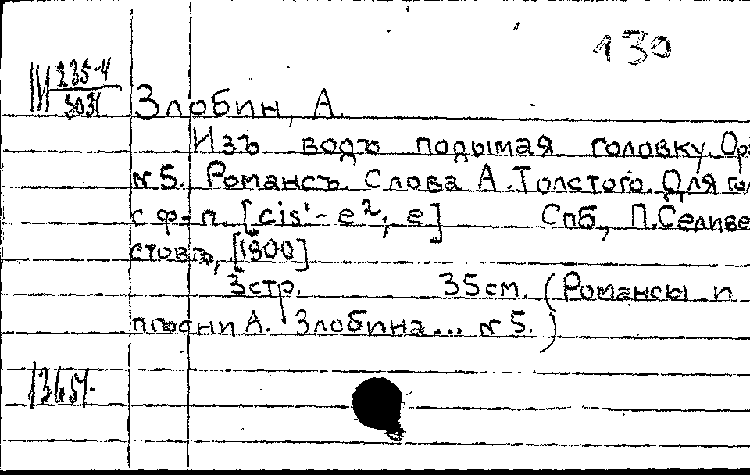 130
Ш 235-4
303
Злобин, А.
Изъ водъ подымая головку. Ор.
№5. Романсъ. Слова А. Толстого. Для гол.
с ф-п. [cis¹-e², e] Спб., П. Селивер-
стовъ, [1900]
3стр. 35см. (Романсы и
пѣсни А. Злобина... №5.)